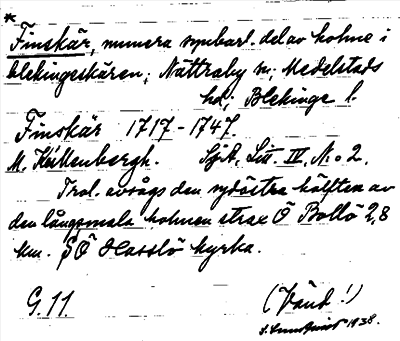 *
Finskär, numera synbarl. del av holme i
blekingeskären; Nättraby sn; Medelstads
hd; Blekinge l.
Finskär 1717-1747.
M. Källenbergh. Sjök. Litt. IV, No 2.
Trol. avsågs den sydöstra hälften av
den långsmala holmen strax Ö Bollö 2,8
km. SÖ Hasslö kyrka.
G. 11. (Vänd!)
1938.